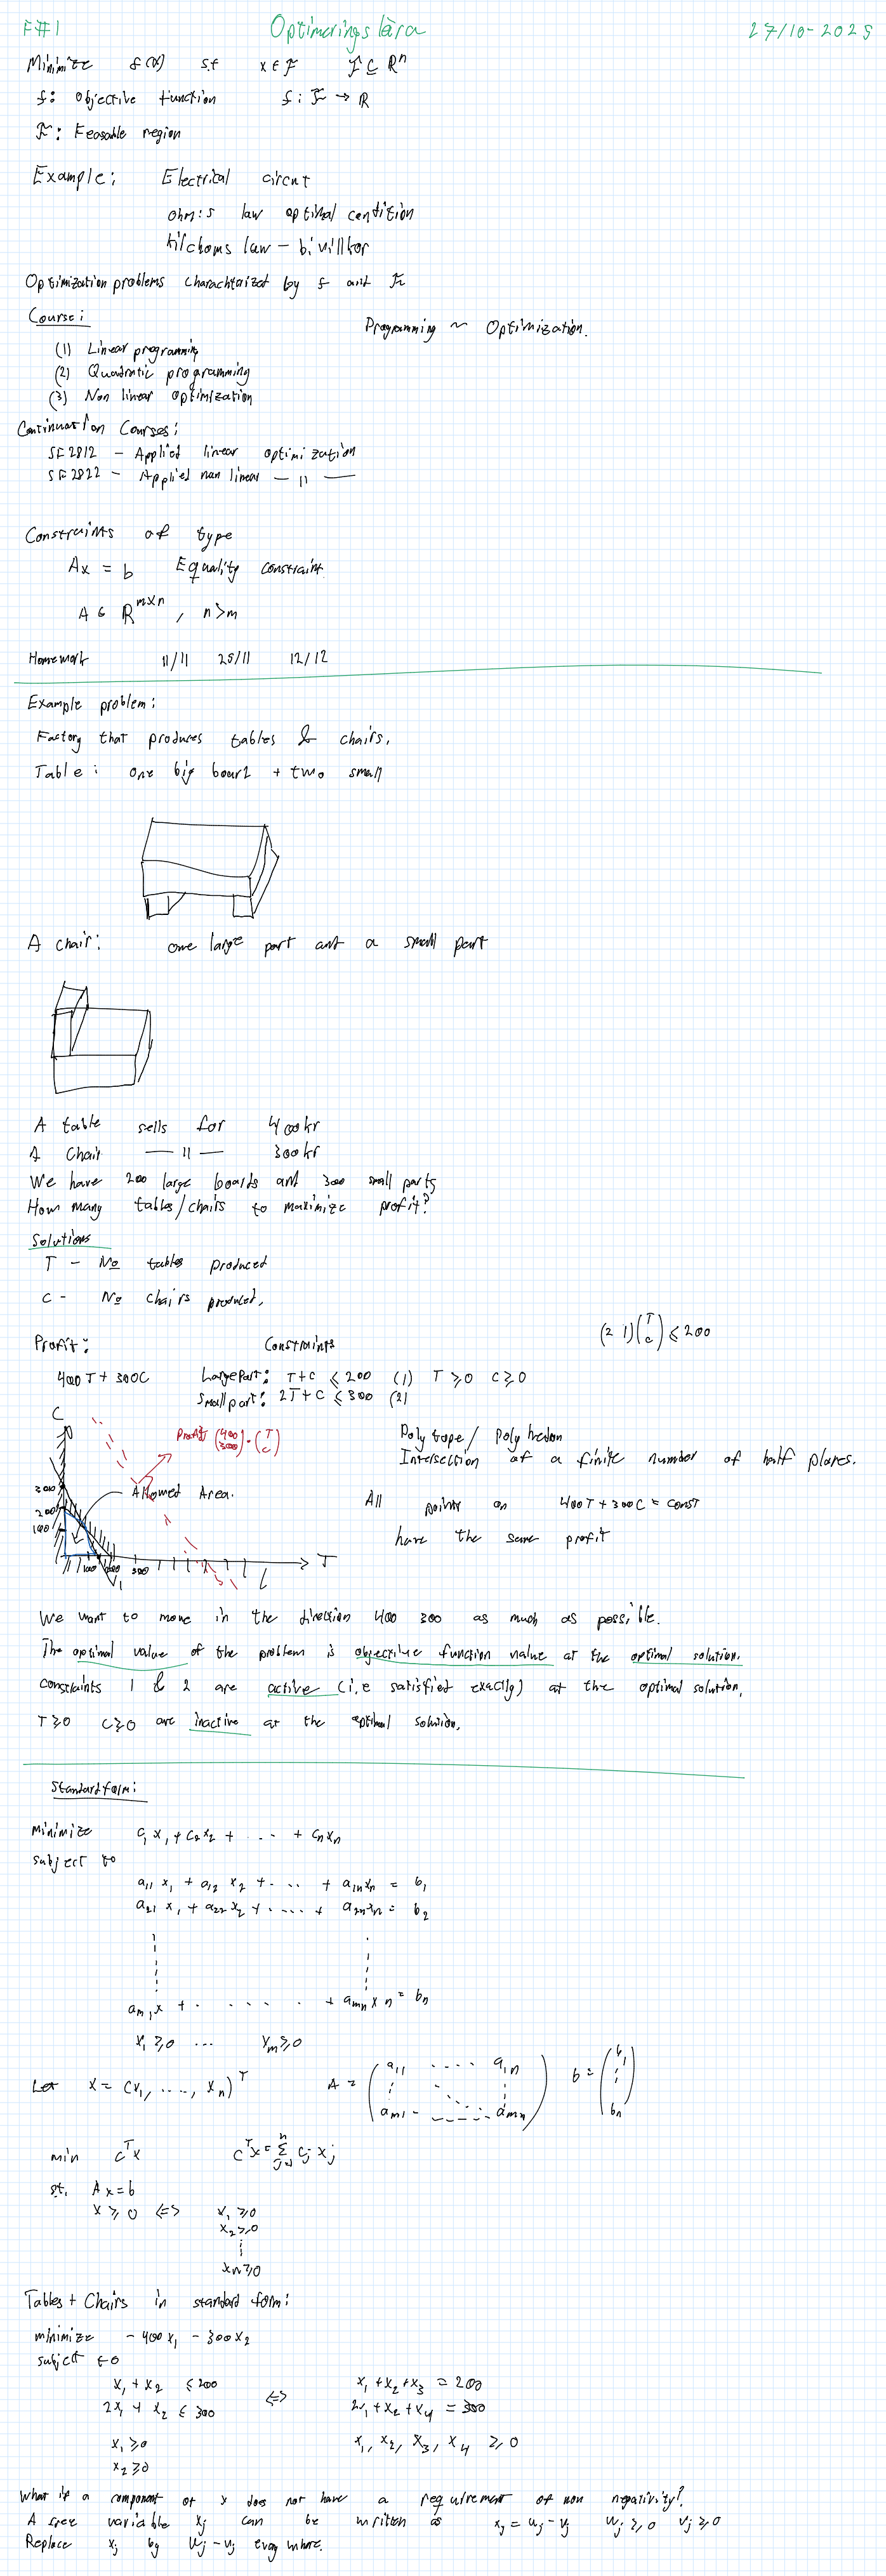 F#1 Optimeringslära 27/10-2025
Minimize f(x) s.t x ∈ F F ⊆ Rⁿ
f: Objective function f: F → R
F: Feasable region
Example: Electrical circut
ohm:s law optimal condition
law - bivillkor
Optimization problems by f and F
Course:
Programming ~ Optimization.
(1) Linear programming
(2) Quadratic programming
(3) Non linear optimization
Continuation Courses:
SF2812 - Applied linear optimization
SF2822 - Applied non linear — 11 —
Constraints of type
Ax = b Equality constraint.
A ∈ R^{m×n}, n>m
Homework 11/11 25/11 12/12
Example problem:
Factory that produces tables & chairs.
Table: one big + two small
A chair: one large part and a small part
A table sells for 400kr
A Chair — 11 — 300kr
We have 200 large boards and 300 small parts
How many tables/chairs to maximize profit?
Solutions
T - No tables produced
C - No chairs produced.
(2 1)(T C) ≤ 200
Profit: Constraints
400T + 300C Large part: T+C ≤ 200 (1) T ≥ 0 C ≥ 0
Small part: 2T+C ≤ 300 (2)
C
Profit (400 300)·(T C)
Polytope / Polyhedon
Intersection of a finite number of half planes.
Allowed Area.
300
200
100
100 200 300 T
All points on 400T + 300C = const
have the same profit
We want to move in the direction 400 300 as much as possible.
The optimal value of the problem is objective function value at the optimal solution.
Constraints 1 & 2 are active (i.e satisfied exactly) at the optimal solution.
T ≥ 0 C ≥ 0 are inactive at the optimal solution.
Standard form:
Minimize c₁x₁ + c₂x₂ + .... + cₙxₙ
subject to
a₁₁x₁ + a₁₂x₂ + .... + a₁ₙxₙ = b₁
a₂₁x₁ + a₂₂x₂ + ..... + a₂ₙxₙ = b₂
aₘ₁x + ..... + aₘₙxn = bₙ
x₁ ≥ 0 ... xₘ ≥ 0
Let x = (x₁, ...., xₙ)ᵀ A = (a₁₁ .... a₁ₙ aₘ₁ - ... aₘₙ) b = (b₁ bₙ)
min cᵀx cᵀx = Σ_{j=1}^{n} cⱼxⱼ
st. Ax = b
x ≥ 0 <=> x₁ ≥ 0
x₂ ≥ 0
xₙ ≥ 0
Tables + Chairs in standard form:
minimize -400x₁ - 300x₂
subject to
x₁ + x₂ ≤ 200 <=> x₁ + x₂ + x₃ = 200
2x₁ + x₂ ≤ 300 2x₁ + x₂ + x₄ = 300
x₁ ≥ 0 x₁, x₂, x₃, x₄ ≥ 0
x₂ ≥ 0
What if a component of x does not have a requirement of non negativity?
A free variable xⱼ can be written as xⱼ = uⱼ - vⱼ uⱼ ≥ 0 vⱼ ≥ 0
Replace xⱼ by uⱼ - vⱼ everywhere.